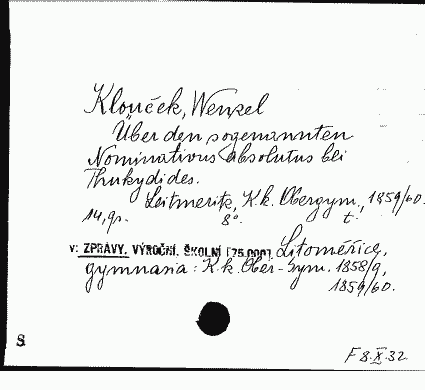 Klouček, Wenzel
Über den sogenannten
Nominativus absolutus bei
Thukydides.
Leitmeritz, K.k. Obergym., 1859/60.
14, 9s. 8° t.
v: ZPRÁVY. VÝROČNÍ. ŠKOLNÍ [75.000]. Litoměřice,
gymnasia: K.k. Ober-Gym. 1858/9,
1859/60.
S
F 8.X.32